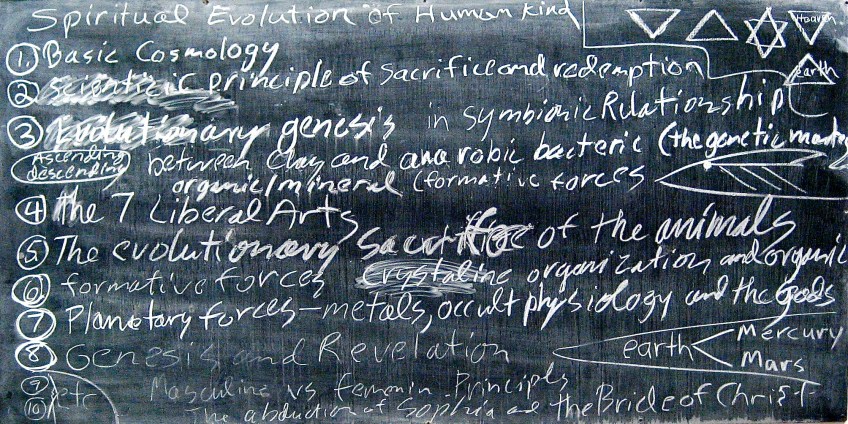 Spiritual Evolution of Human Kind
Heaven
earth
1. Basic Cosmology
2 scientific principle of sacrifice and redemption
3 Evolutionary genesis in symbionic Relationship
Ascending descending between Clay and anarobic bacteric (the genetic
organic/mineral (formative forces
4 The 7 Liberal Arts
5 The evolutionary Sacrifice of the animals
6 formative forces Crystaline organization and organic
7 Planetary forces - metals, occult physiology and the Gods
8 Genesis and Revelation
earth < Mercury
Mars
9 etc Masculine vs femenin Principls
10 The abduction of Sophia and the Bride of Christ